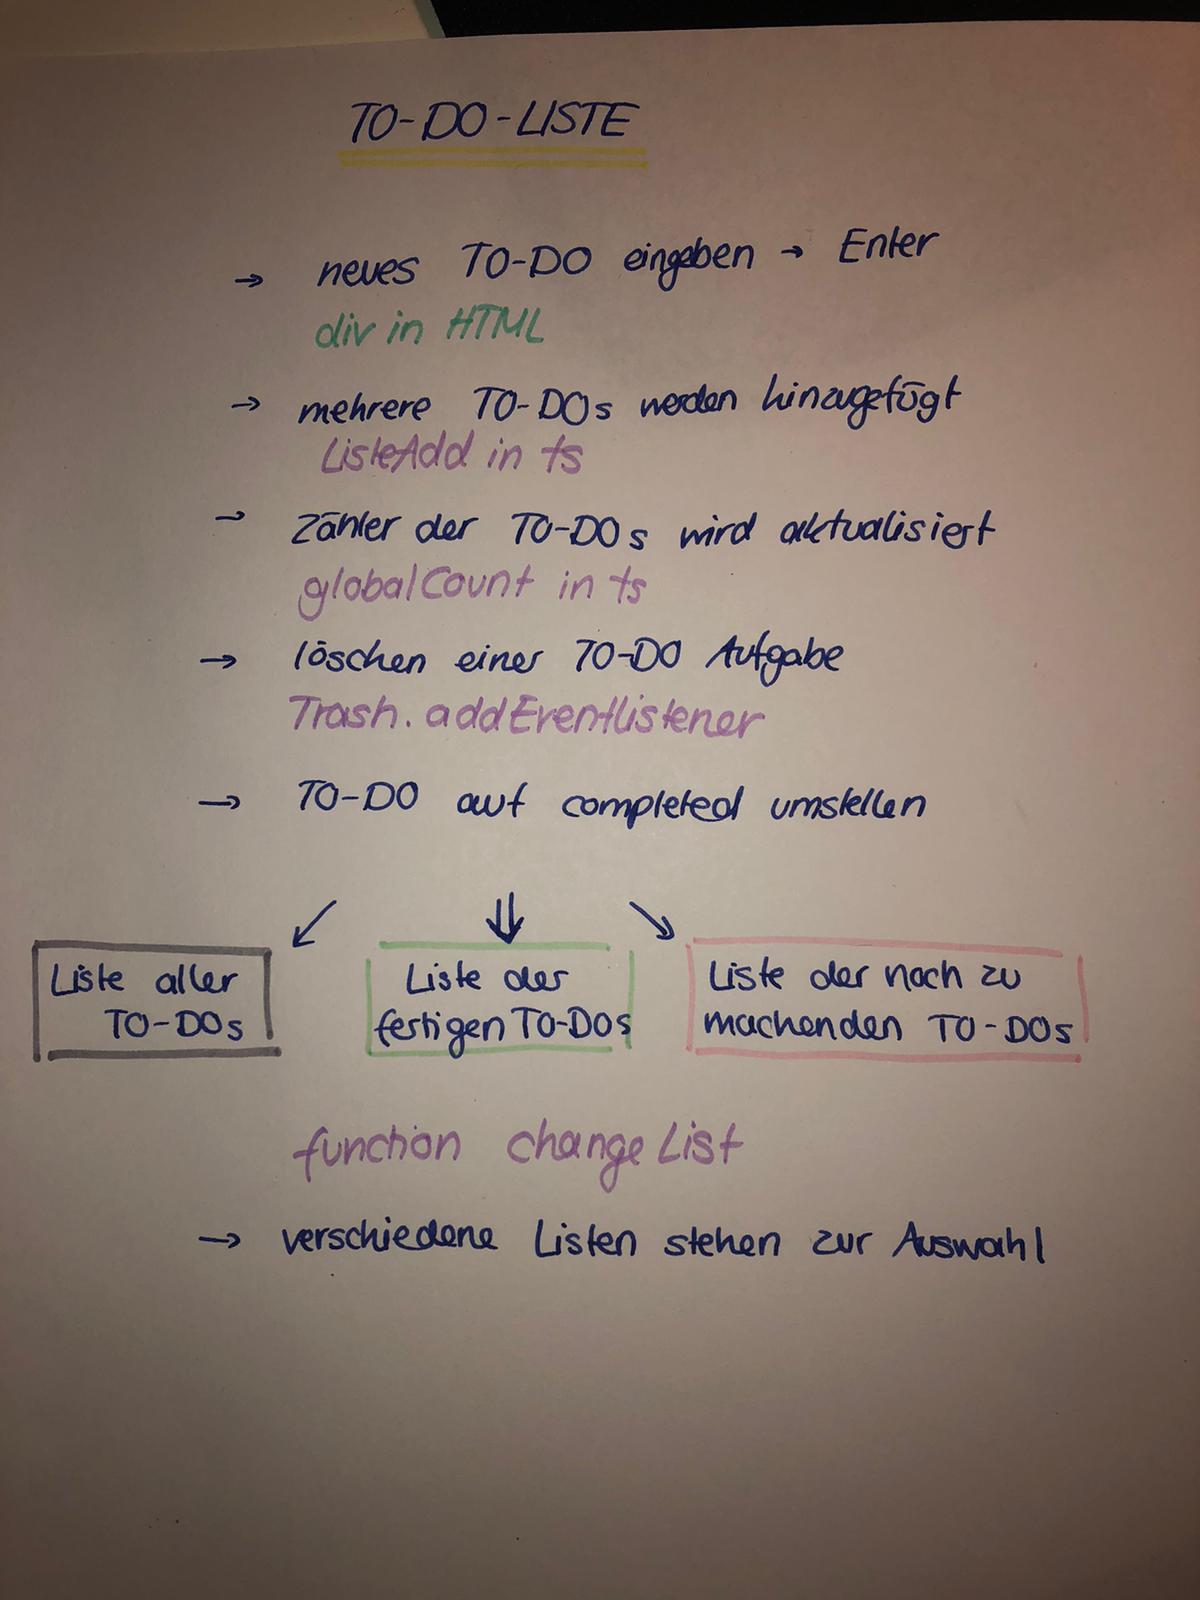 TO-DO-LISTE
→ neues TO-DO eingeben → Enter
div in HTML
→ mehrere TO-DOs werden hinzugefügt
ListeAdd in ts
→ Zähler der TO-DOs wird aktualisiert
globalCount in ts
→ löschen einer TO-DO Aufgabe
Trash.addEventlistener
→ TO-DO auf completed umstellen
↙ ⇓ ↘
Liste aller
TO-DOs
Liste der
fertigen TO-DOs
Liste der noch zu
machenden TO-DOs
function changeList
→ verschiedene Listen stehen zur Auswahl